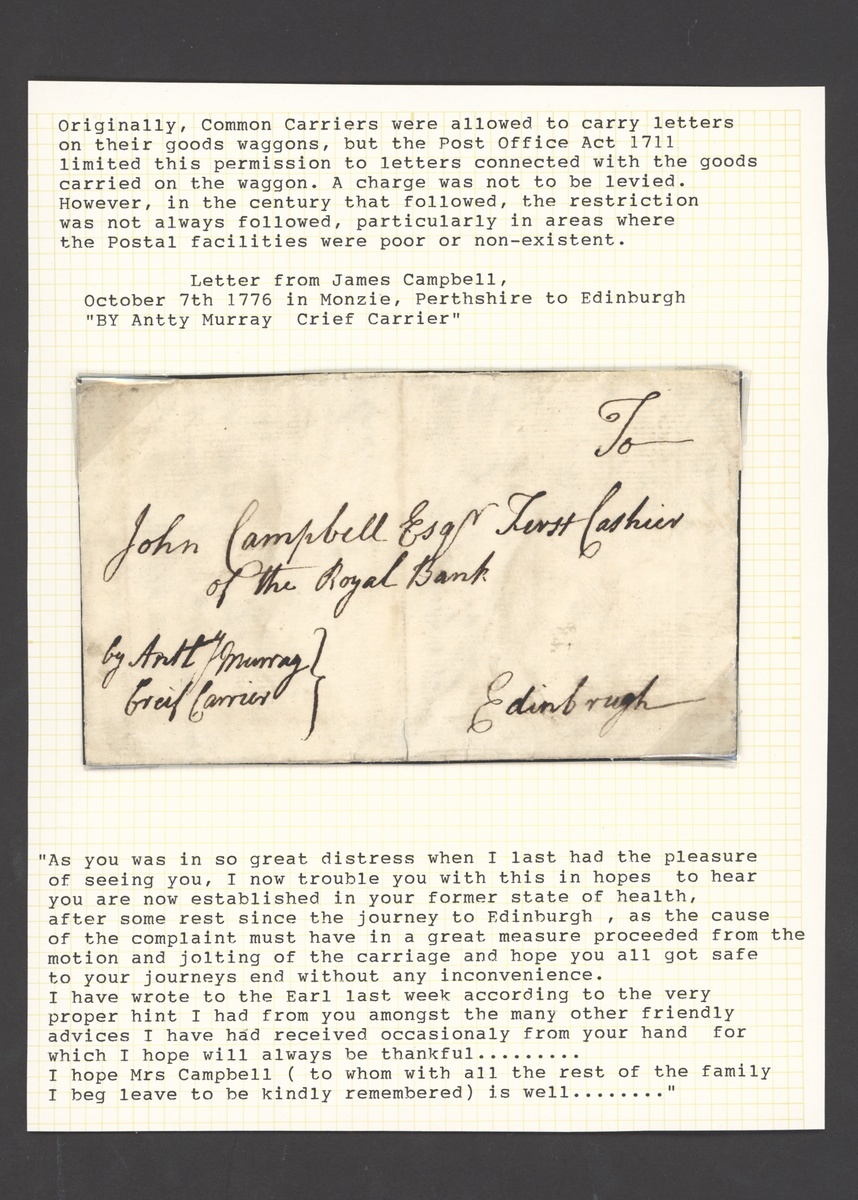 Originally, Common Carriers were allowed to carry letters
on their goods waggons, but the Post Office Act 1711
limited this permission to letters connected with the goods
carried on the waggon. A charge was not to be levied.
However, in the century that followed, the restriction
was not always followed, particularly in areas where
the Postal facilities were poor or non-existent.
Letter from James Campbell,
October 7th 1776 in Monzie, Perthshire to Edinburgh
"BY Antty Murray Crief Carrier"
To
John Campbell Esqr Ferst Cashier
of the Royal Bank
by Antty Murray
Creif Carrier
Edinbrugh
"As you was in so great distress when I last had the pleasure
of seeing you, I now trouble you with this in hopes to hear
you are now established in your former state of health,
after some rest since the journey to Edinburgh , as the cause
of the complaint must have in a great measure proceeded from the
motion and jolting of the carriage and hope you all got safe
to your journeys end without any inconvenience.
I have wrote to the Earl last week according to the very
proper hint I had from you amongst the many other friendly
advices I have had received occasionaly from your hand for
which I hope will always be thankful.........
I hope Mrs Campbell ( to whom with all the rest of the family
I beg leave to be kindly remembered) is well........"